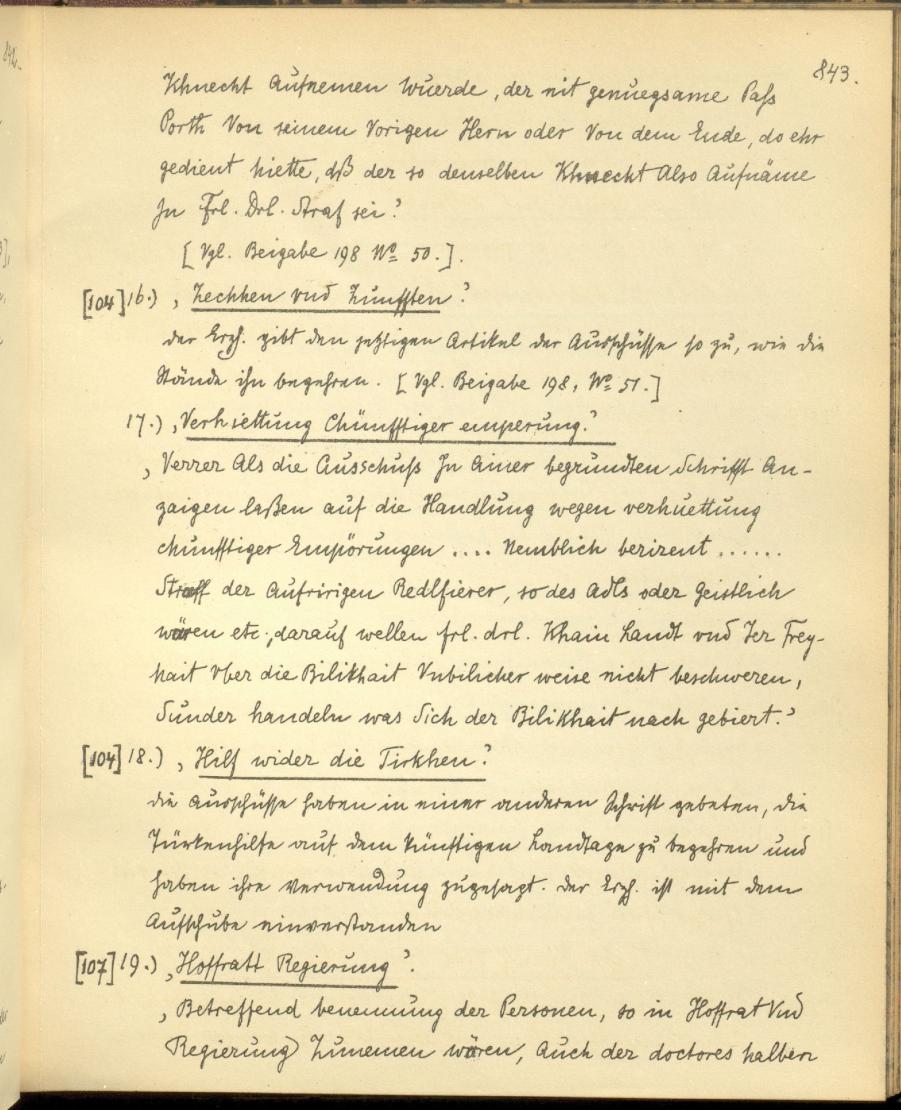 843.
Khnecht Aufnemen wuerde, der nit genuegsame Paß
Porth Von seinem Vorigen Hern oder Von dem Ende, do ehr
gedient hiette, dß der so denselben Khnecht Also Aufnäme
In Frl. Drl. Straf sei?
[Vgl. Beigabe 198 No 50.].
[104] 16.) ‚Zechhen vnd Zunfften‘:
der Erzh. gibt den jetztigen Artikel der Ausschüsse so zu, wie die
Stände ihn begehren. [Vgl. Beigabe 198, No 51.]
17.) ‚Verhiettung Chünfftiger emperung.‘
‚Verrer Als die Ausschuß In Ainer begrundten Schrifft An-
zaigen laßen auf die Handlung wegen verhuettung
chunfftiger Empörungen .... Nemblich berirent ......
Straff der Aufririgen Redlfierer, so des Adls oder Geistlich
wären etc., darauf wellen frl. drl. Khain Landt vnd Jer Frey-
hait Vber die Bilikhait Vnbilicher weise nicht beschweren,
Sunder handeln was Sich der Bilikhait nach gebiert.‘
[104] 18.) ‚Hilf wider die Tirkhen‘:
die Ausschüsse haben in einer anderen Schrift gebeten, die
Türkenhilfe auf dem künftigen Landtage zu begehren und
haben ihre Verwendung zugesagt. Der Erzh. ist mit dem
Aufschube einverstanden
[107] 19.) ‚Hoffratt Regierung‘.
‚Betreffend benennung der Personen, so in Hoffrat Vnd
Regierung Zunemen wären, Auch der doctores halben